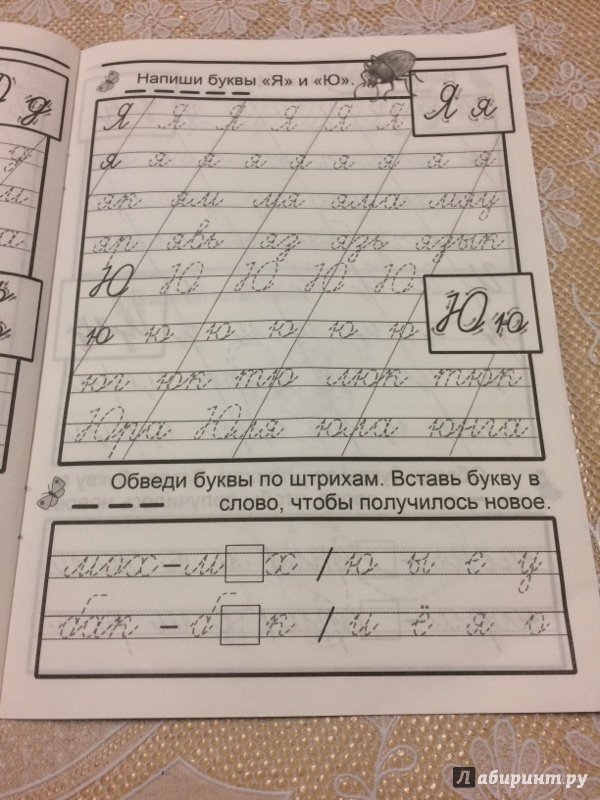 Напиши буквы «Я» и «Ю».
Я Я Я Я Я Я Я я
я я я я я я я я я
як ям мя яма мяу
яп явь яз язь язык
Ю Ю Ю Ю Ю
Ю ю
ю ю ю ю ю ю
юг юк тю люк тюк
Юра Юля юла юнга
Обведи буквы по штрихам. Вставь букву в
слово, чтобы получилось новое.
мох – м х / ю ы е у
бак – б к / и ё я о
Лабиринт.ру